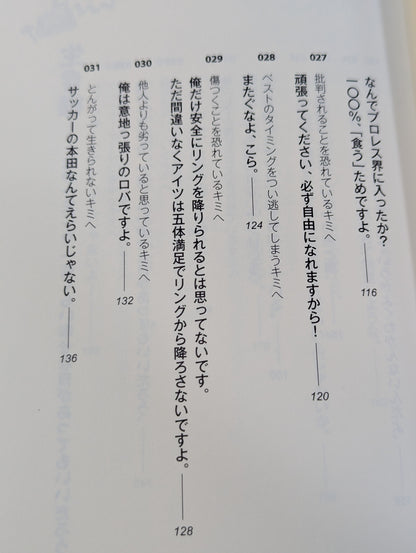 なんでプロレス界に入ったか？
一〇〇％、「食う」ためですよ。 116
027
批判されることを恐れているキミへ
頑張ってください、必ず自由になれますから！ 120
028
ベストのタイミングをつい逃してしまうキミへ
またぐなよ、こら。 124
029
傷つくことを恐れているキミへ
俺だけ安全にリングを降りられるとは思ってないです。
ただ間違いなくアイツは五体満足でリングから降ろさないですよ。 128
030
他人よりも劣っていると思っているキミへ
俺は意地っ張りのロバですよ。 132
031
とんがって生きられないキミへ
サッカーの本田なんてえらいじゃない。 136